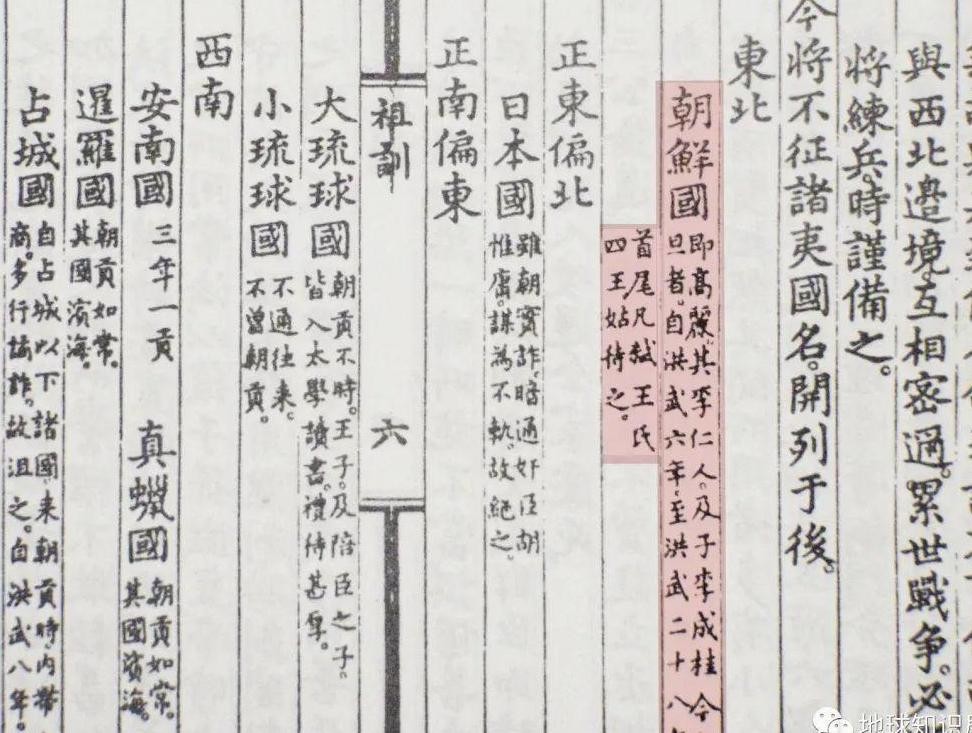 與西北邊境互相密邇。累世戰争。必
將練兵。時謹備之。
今將不征諸夷國名。開列于後。
東北
朝鮮國
即高麗。其李仁人。及子李成桂今
旦者。自洪武六年。至洪武二十八年
首尾凡弑王氏
四王姑待之。
正東偏北
日本國
雖朝實詐。暗通奸臣胡
惟庸。謀為不軌。故絕之。
正南偏東
祖訓
六
大琉球國
朝貢不時。王子。及陪臣之子。
皆入太學讀書。禮待甚厚。
小琉球國
不通往来。
不曾朝貢。
西南
安南國
三年一貢
真蠟国
朝貢如常。
其國濱海。
暹羅國
朝貢如常。
其國濱海。
占城國
自占城以下諸國。来朝貢時。内帶
商。多行譎詐。故沮之。自洪武八年。
地球知识